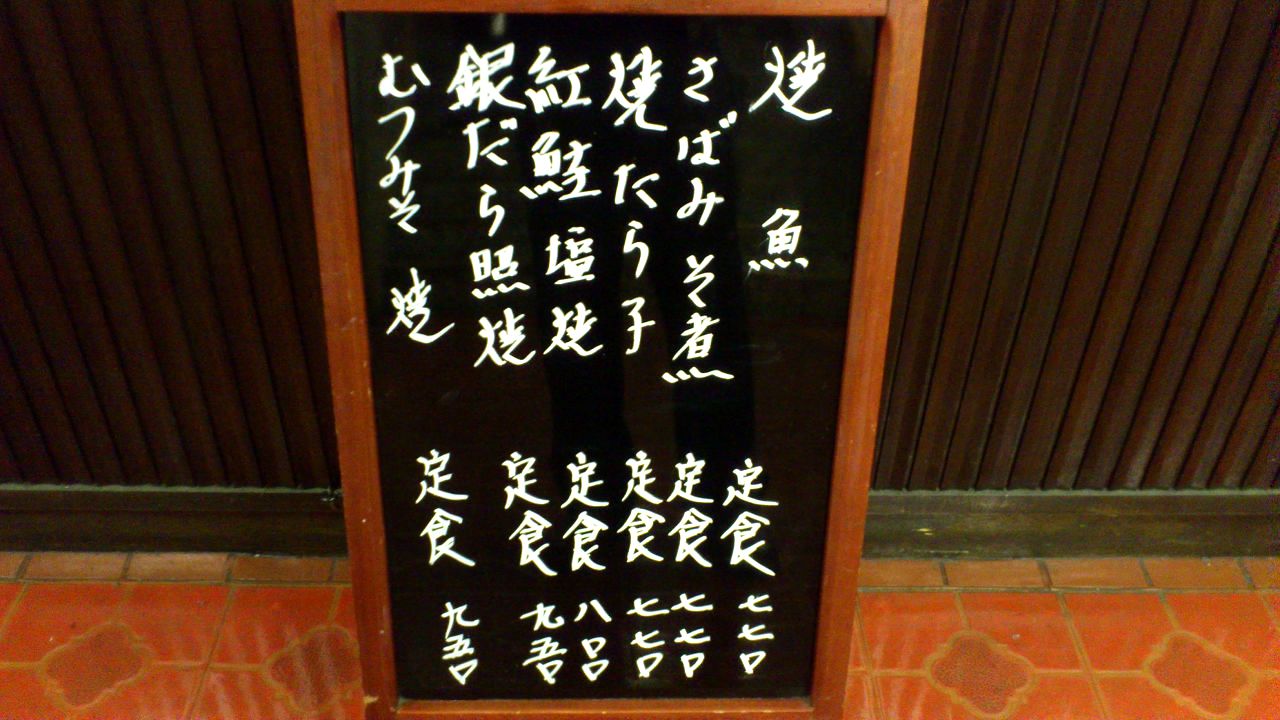 焼魚定食 七七〇
さばみそ煮定食 七七〇
焼たら子定食 七七〇
紅鮭塩焼定食 八〇〇
銀だら照焼定食 九五〇
むつみそ焼定食 九五〇